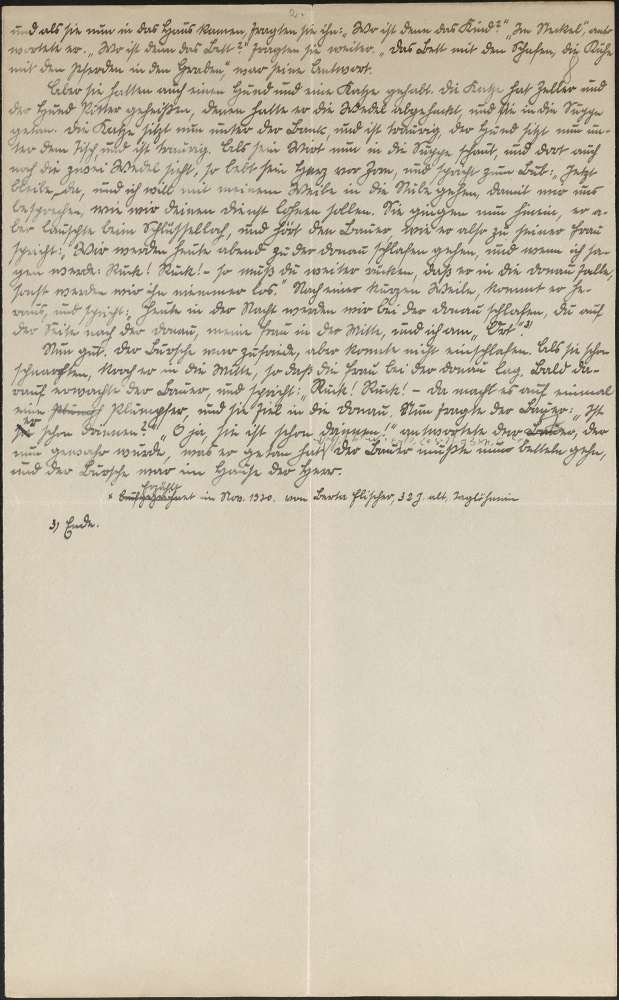 2.
und als sie nun in das Haus kamen, fragten sie ihn: „Wo ist denn das Kind?" „Im Steckel", ant-
wortete er. „Wo ist denn das Bett?" fragten sie weiter. „Das Bett mit den Schafen, die Kühe
mit den Pferden in den Graben," war seine Antwort.
Aber sie hatten auch einen Hund und eine Katze gehabt. Die Katze hat Zeller und
der Hund Pitter geheißen, denen hatte er die Wedel abgehackt, und sie in die Suppe
getan. Die Katze sitzt nun unter der Bank, und ist traurig, der Hund sitzt nun un-
ter dem Tisch, und ist traurig. Als sein Wirt nun in die Suppe schaut, und dort auch
noch die zwei Wedel sieht, so bebt sein Herz vor Zorn, und spricht zum Bub: „Jetzt
bleibe da, und ich will mit meinem Weibe in die Stube gehen, damit wir uns
besprechen, wie wir deinen Dienst lohnen sollen. Sie gingen nun hinein, er a-
ber lauschte beim Schlüsselloch, und hört den Bauer, wie er also zu seiner Frau
spricht: „Wir werden heute abend zu der Donau schlafen gehen, und wenn ich sa-
gen werde: Ruck! Ruck! – so mußt du weiter rücken, daß er in die Donau falle,
sonst werden wir ihn niemmer los." Nach einer kurzen Weile, kommt er he-
raus, und spricht: „Heute in der Nacht werden wir bei der Donau schlafen, du auf
der Seite nach der Donau, meine Frau in der Mitte, und ich am „Ort" 3)
Nun gut. Der Bursche war zufriede, aber konnte nicht einschlafen. Als sie schon
schnarchten, kroch er in die Mitte, so daß die Frau bei der Donau lag. Bald da-
rauf erwachte der Bauer, und spricht: „Ruck! Ruck! – Da macht es auf einmal
eine Plumpser, und sie fiel in die Donau. Nun fragte der Bauer: „Ist
er schon drinnen?" „O ja, sie ist schon drinnen!" antwortete der Bauer, der
nun gewahr wurde, was er getan hat, der Bauer mußte nun betteln gehn,
und der Bursche war im Hause der Herr.
Erzählt
* Aufgezeichnet im Nov. 1930. von Berta Flischer, 32 J. alt, Taglöhnerin
3) Ende.